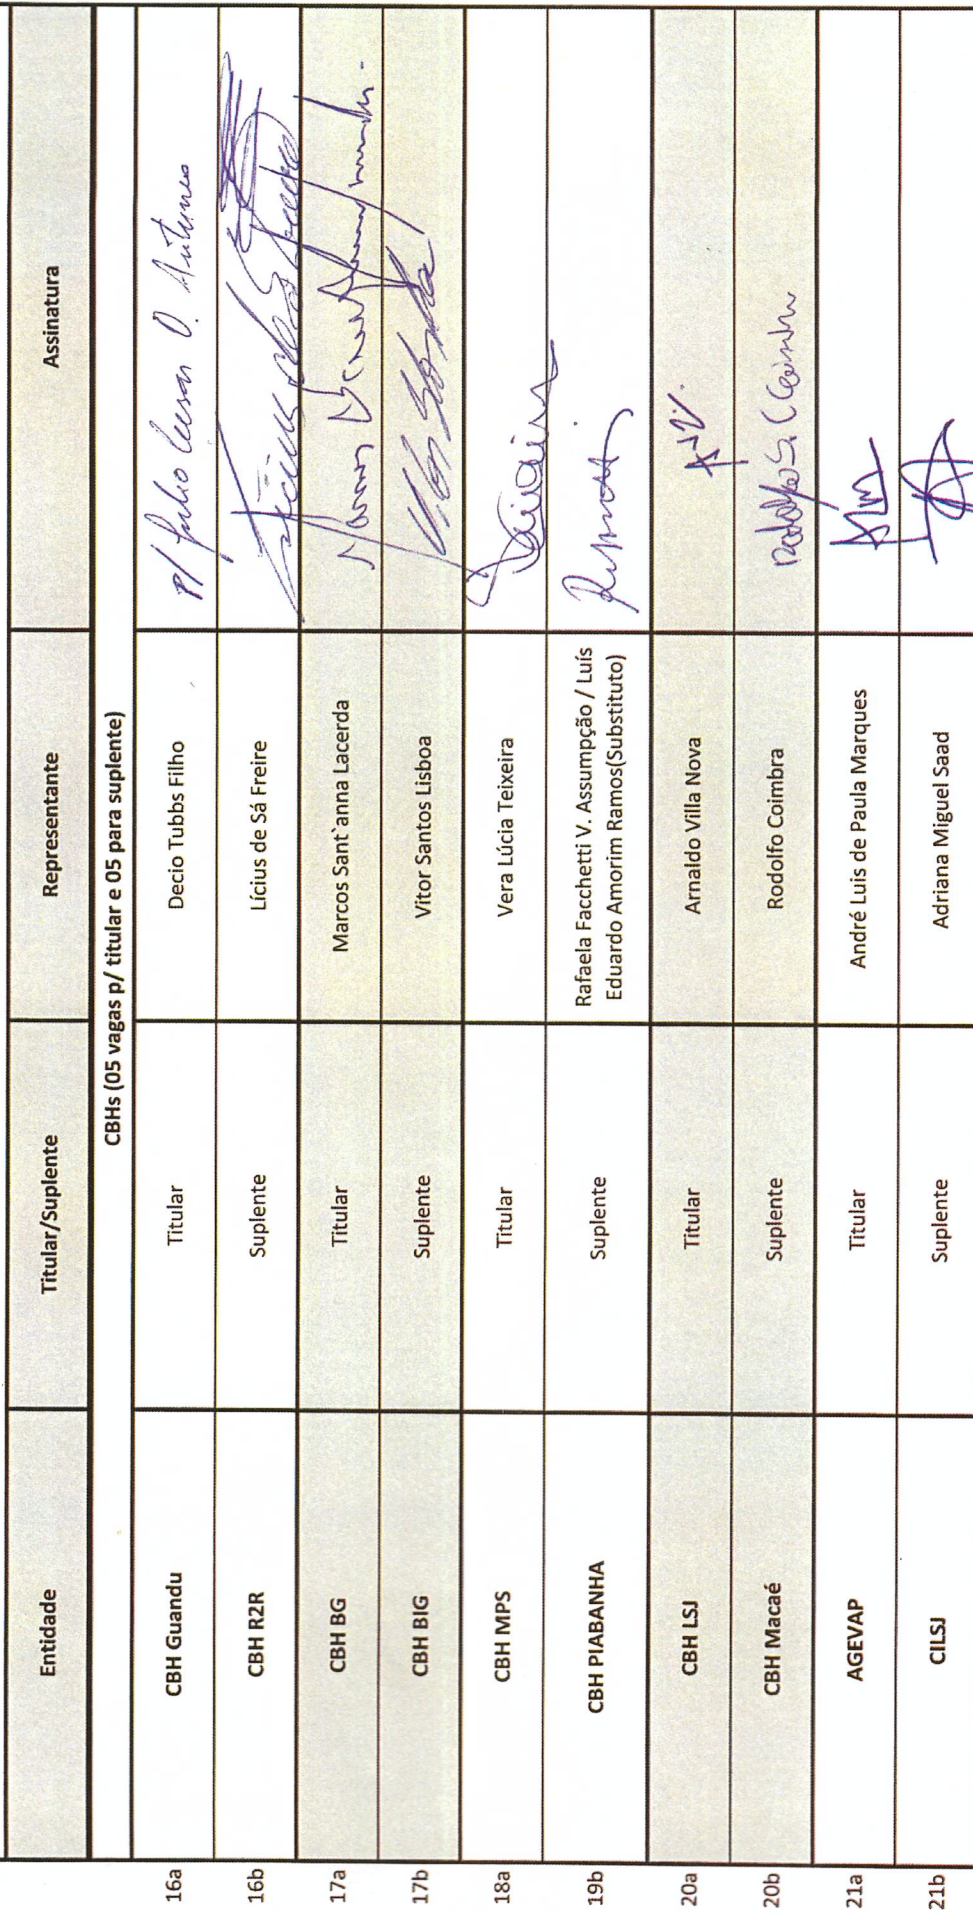 Entidade Titular/Suplente Representante Assinatura
CBHs (05 vagas p/ titular e 05 para suplente)
16a CBH Guandu Titular Decio Tubbs Filho p/ Julio Cesar O. Antunes
16b CBH R2R Suplente Lícius de Sá Freire
17a CBH BG Titular Marcos Sant`anna Lacerda
17b CBH BIG Suplente Vitor Santos Lisboa
18a CBH MPS Titular Vera Lúcia Teixeira
19b CBH PIABANHA Suplente Rafaela Facchetti V. Assumpção / Luís
Eduardo Amorim Ramos(Substituto)
20a CBH LSJ Titular Arnaldo Villa Nova
20b CBH Macaé Suplente Rodolfo Coimbra Rodolfo S. C Coimbra
21a AGEVAP Titular André Luis de Paula Marques
21b CILSJ Suplente Adriana Miguel Saad